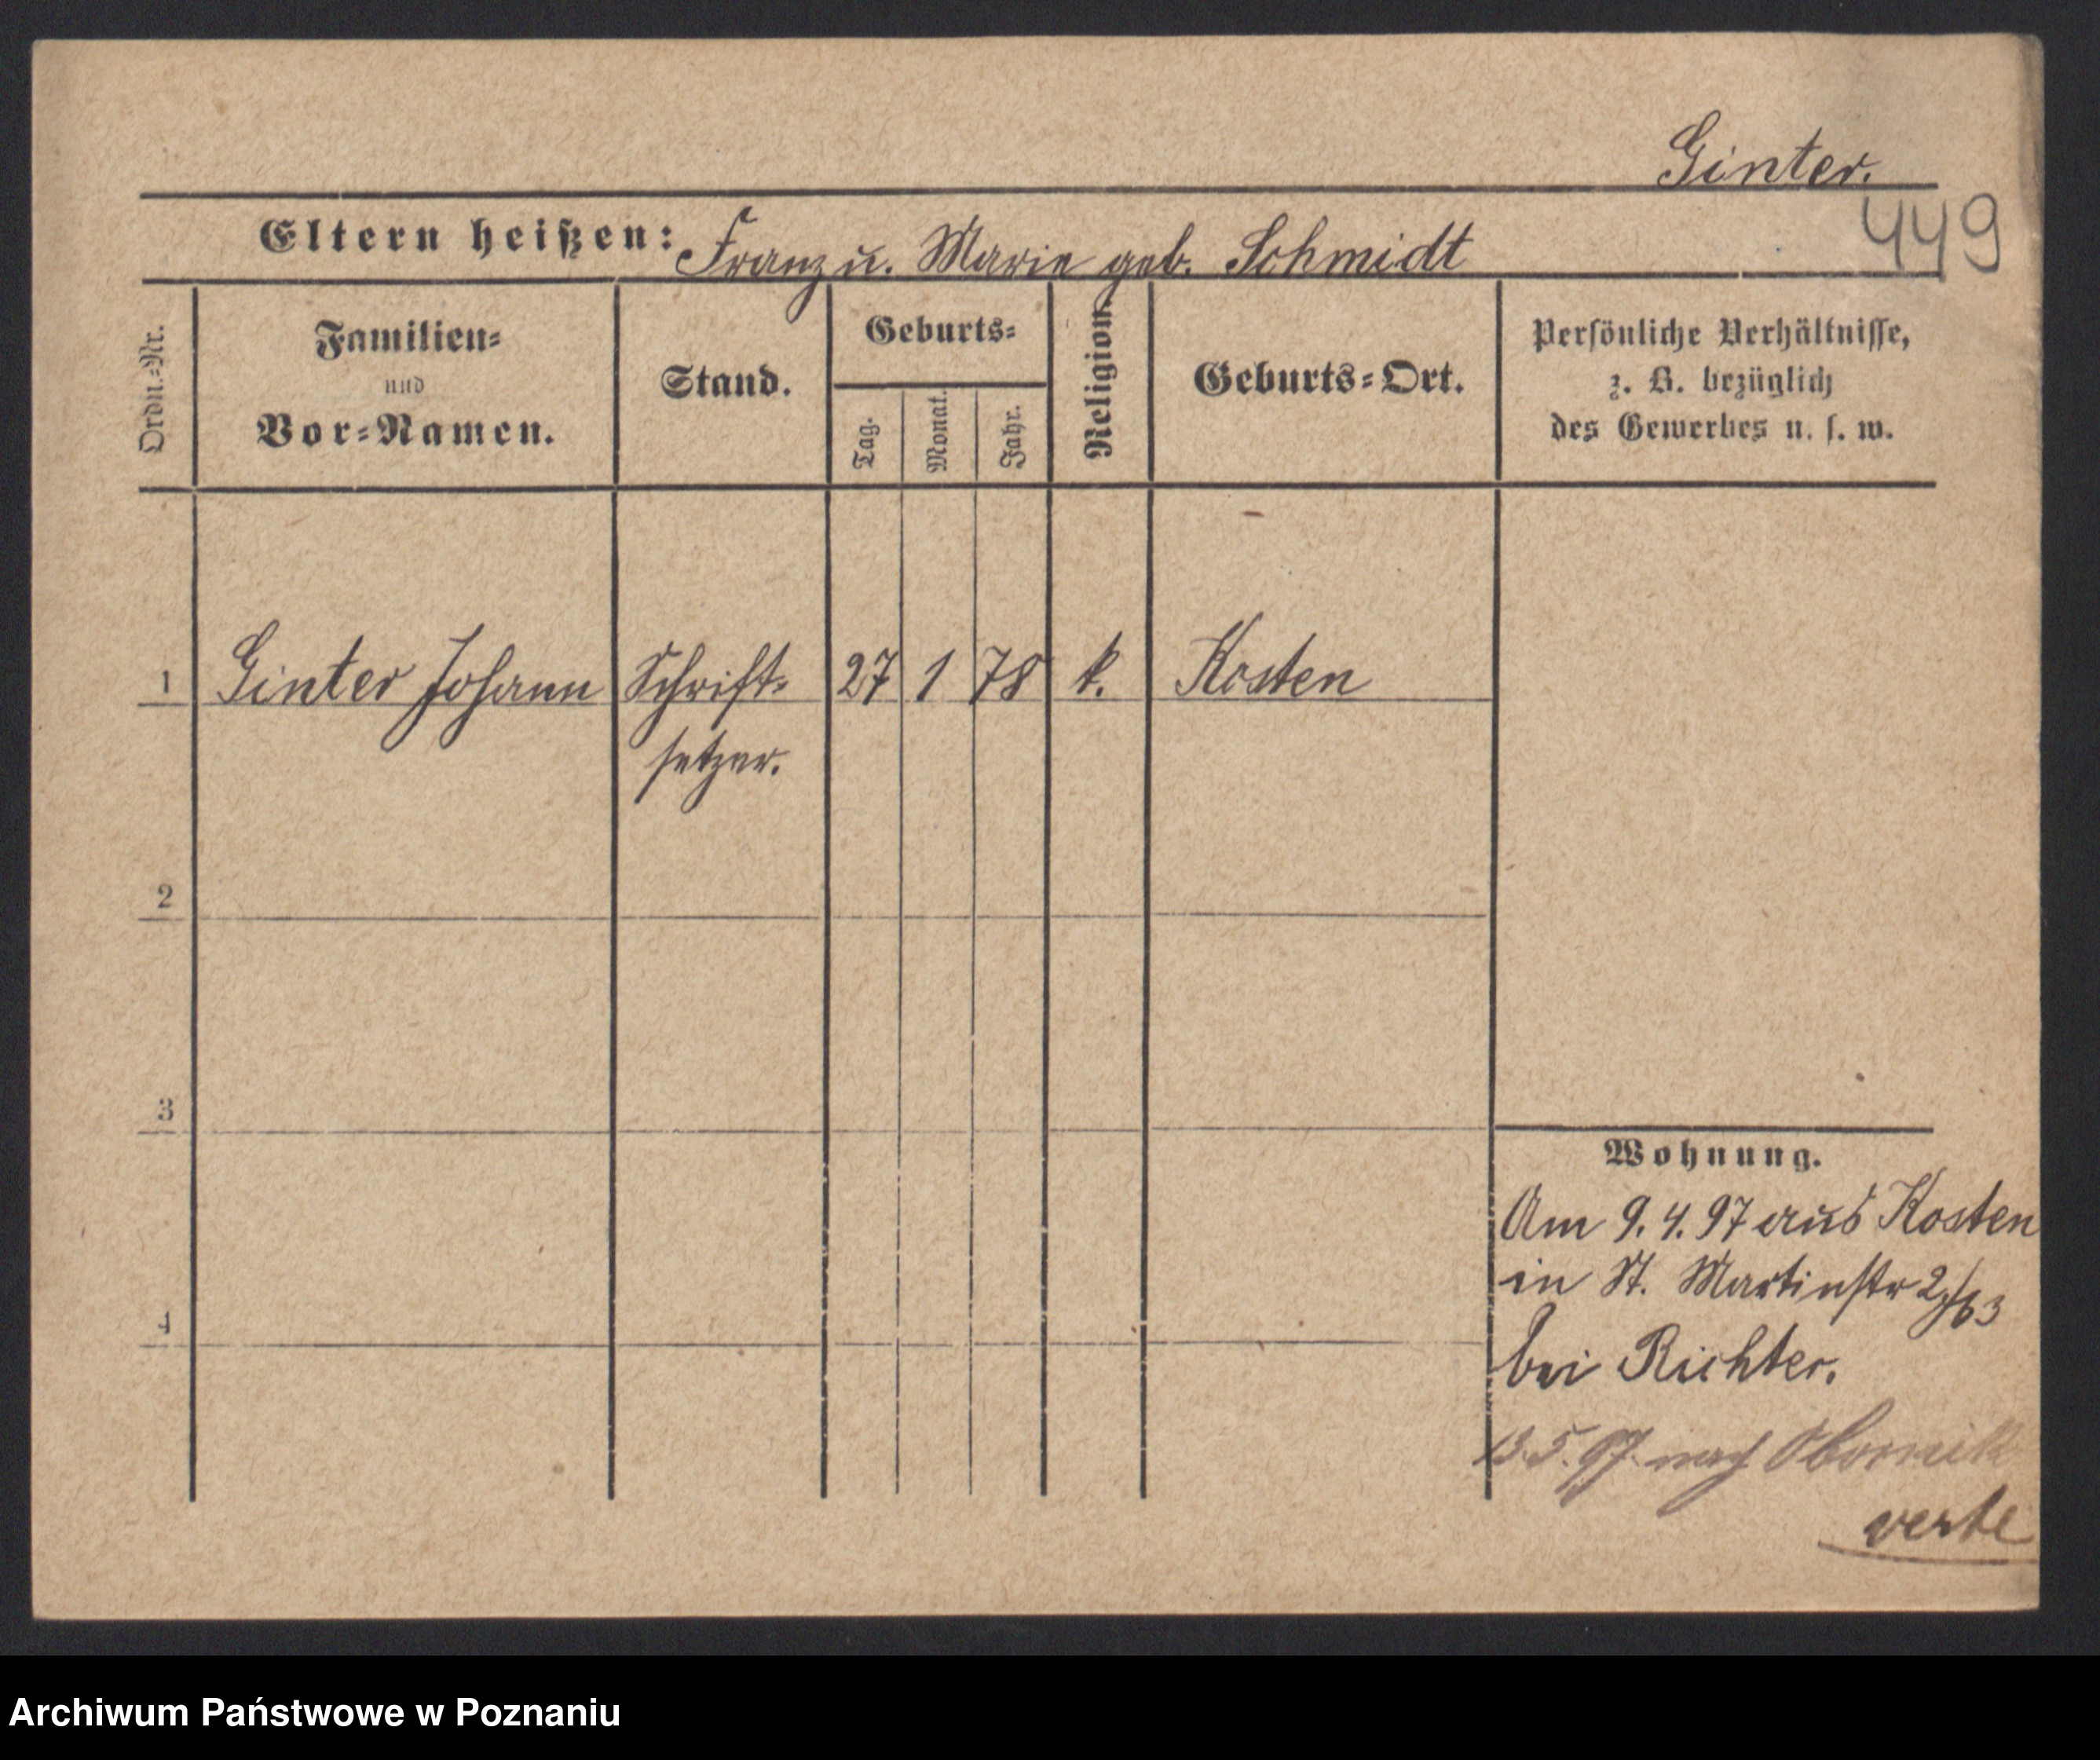 Ginter.
449
Eltern heißen: Franz u. Marie geb. Schmidt
Ordn.=Nr.
Familien=
und
Vor=Namen.
Stand.
Geburts=
Tag.
Monat.
Jahr.
Religion.
Geburts=Ort.
Persönliche Verhältnisse,
z. B. bezüglich
des Gewerbes u. s. w.
1 Ginter Johann Schrift= 27 1 78 k. Kosten
setzer.
2
3
4
Wohnung.
Am 9. 4. 97 aus Kosten
in St. Martinstr 2/63
bei Richter.
13. 5. 97. nach Obornik
verte
Archiwum Państwowe w Poznaniu